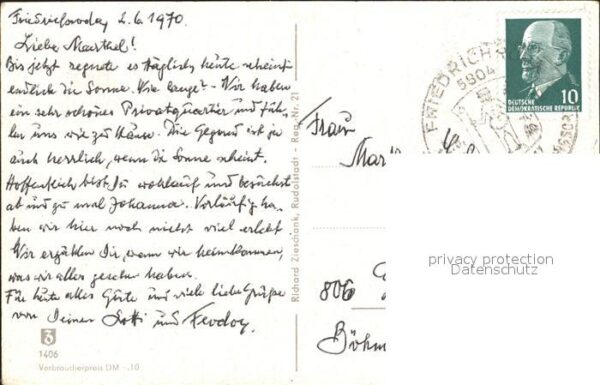 Friedrichroda, 2.6.1970.
Liebe Marthel!
Bis jetzt regnete es täglich, heute scheint
endlich die Sonne. Wie lange? – Wir haben
ein sehr schönes Privatquartier und füh-
len uns wie zu Hause. Die Gegend ist ja
auch herrlich, wenn die Sonne scheint.
Hoffentlich bist Du wohlauf und besuchst
ab und zu mal Johanna. Vorläufig ha-
ben wir hier noch nicht viel erlebt
Wir erzählen Dir, wenn wir heimkommen,
was wir alles gesehen haben.
Für heute alles Gute und viele liebe Grüße
von Deiner Lotti und Feodor.
1406
Verbraucherpreis DM -.10
Richard Zieschank, Rudolstadt - Reg. Nr. 21
FRIEDRICHR
5804
DEUTSCHE
DEMOKRATISCHE REPUBLIK
10
Frau
Mar
806
Böhm
privacy protection
Datenschutz